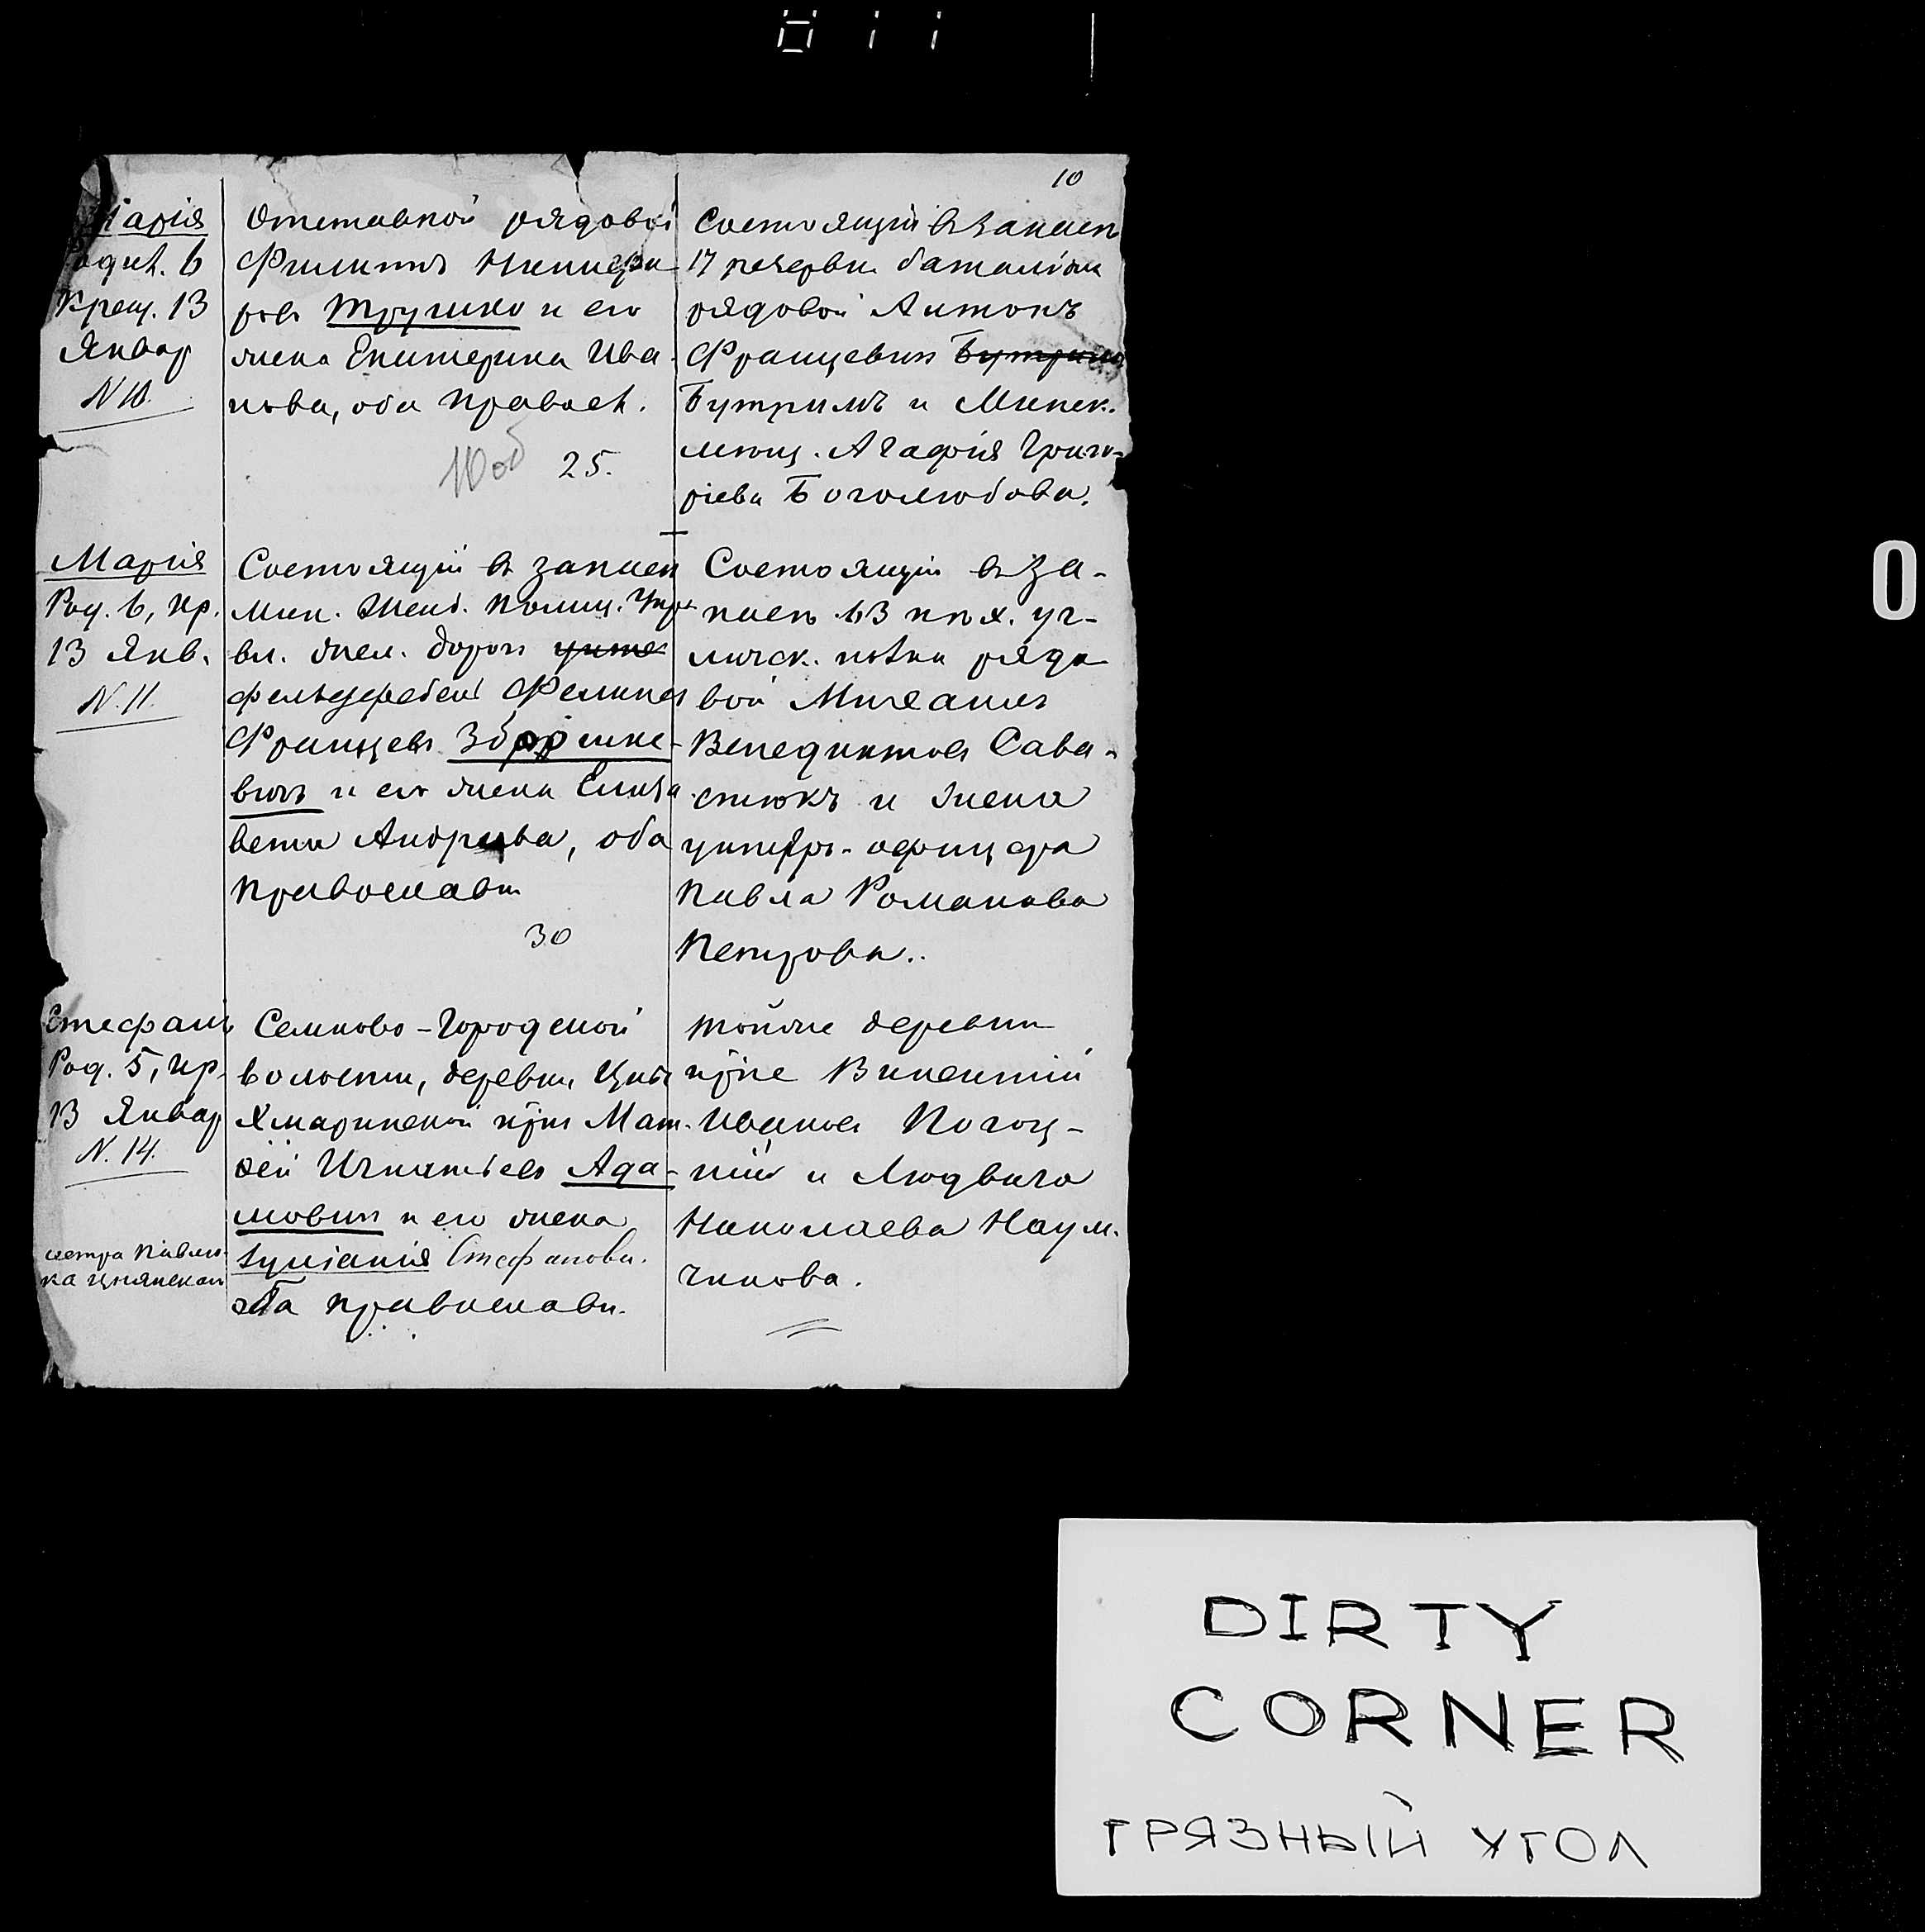 10
Марія
Родил. 6
Крещ. 13
Январ
N 10.
Отставной рядовой
Филиппъ Никифо
ровъ Трушко и его
жена Екатерина Ива-
нова, оба правосл.
10об 25.
Состоящій въ запасѣ
17 резервн. баталіона
рядовой Антонъ
Францевичъ Бутримъ
Бутримъ и Минск.
мѣщ. Агафія Григо-
ріева Боголюбова.
Марія
Род. 6, кр.
13 Янв.
N. 11.
Состоящій въ запасѣ
Мин. Жанд. Полиц. Упра
вл. жел. дорогъ унте
фельдфебель Феликсъ
Францевъ Здрошке-
вичъ и его жена Елиза
вета Андреева, оба
православн
30
Состоящій въ за-
пасѣ 63 пѣх. уг-
лицк. полка рядо
вой Михаилъ
Венедиктовъ Сава-
стюкъ и жена
унтеръ-офицера
Павла Романова
Петрова..
Стефанъ
Род. 5, кр.
13 Январ
N. 14.
сестра Павлю-
ка цнянская
Семково-Городской
волости, деревни Цна
Хмаринской кр-нъ Мат-
вей Игнатьевъ Ада-
мовичъ и его жена
Іуліанія Стефанова.
оба православн.
тойже деревни
кр-не Викентій
Ивановъ Погоц-
кій и Людвига
Николаева Наум-
чикова.
DIRTY
CORNER
ГРЯЗНЫЙ УГОЛ
0